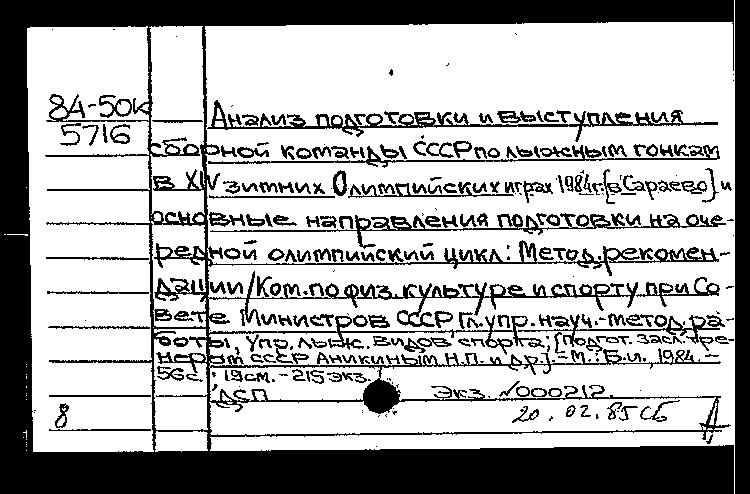 84-50к
5716
Анализ подготовки и выступления
сборной команды СССР по лыжным гонкам
в XIV зимних Олимпийских играх 1984г. [в Сараево] и
основные направления подготовки на оче-
редной олимпийский цикл: Метод. рекомен-
дации/Ком. по физ. культуре и спорту при Со-
вете Министров СССР, Гл. упр. науч.-метод. ра-
боты, Упр. лыж. видов спорта; [Подгот. засл. тре-
нером СССР Аникиным Н.П. и др.]. - М.: Б.и., 1984. -
56с.; 19см. - 215 экз.
ДСП Экз. N000212.
8 20.02.85 СБ А